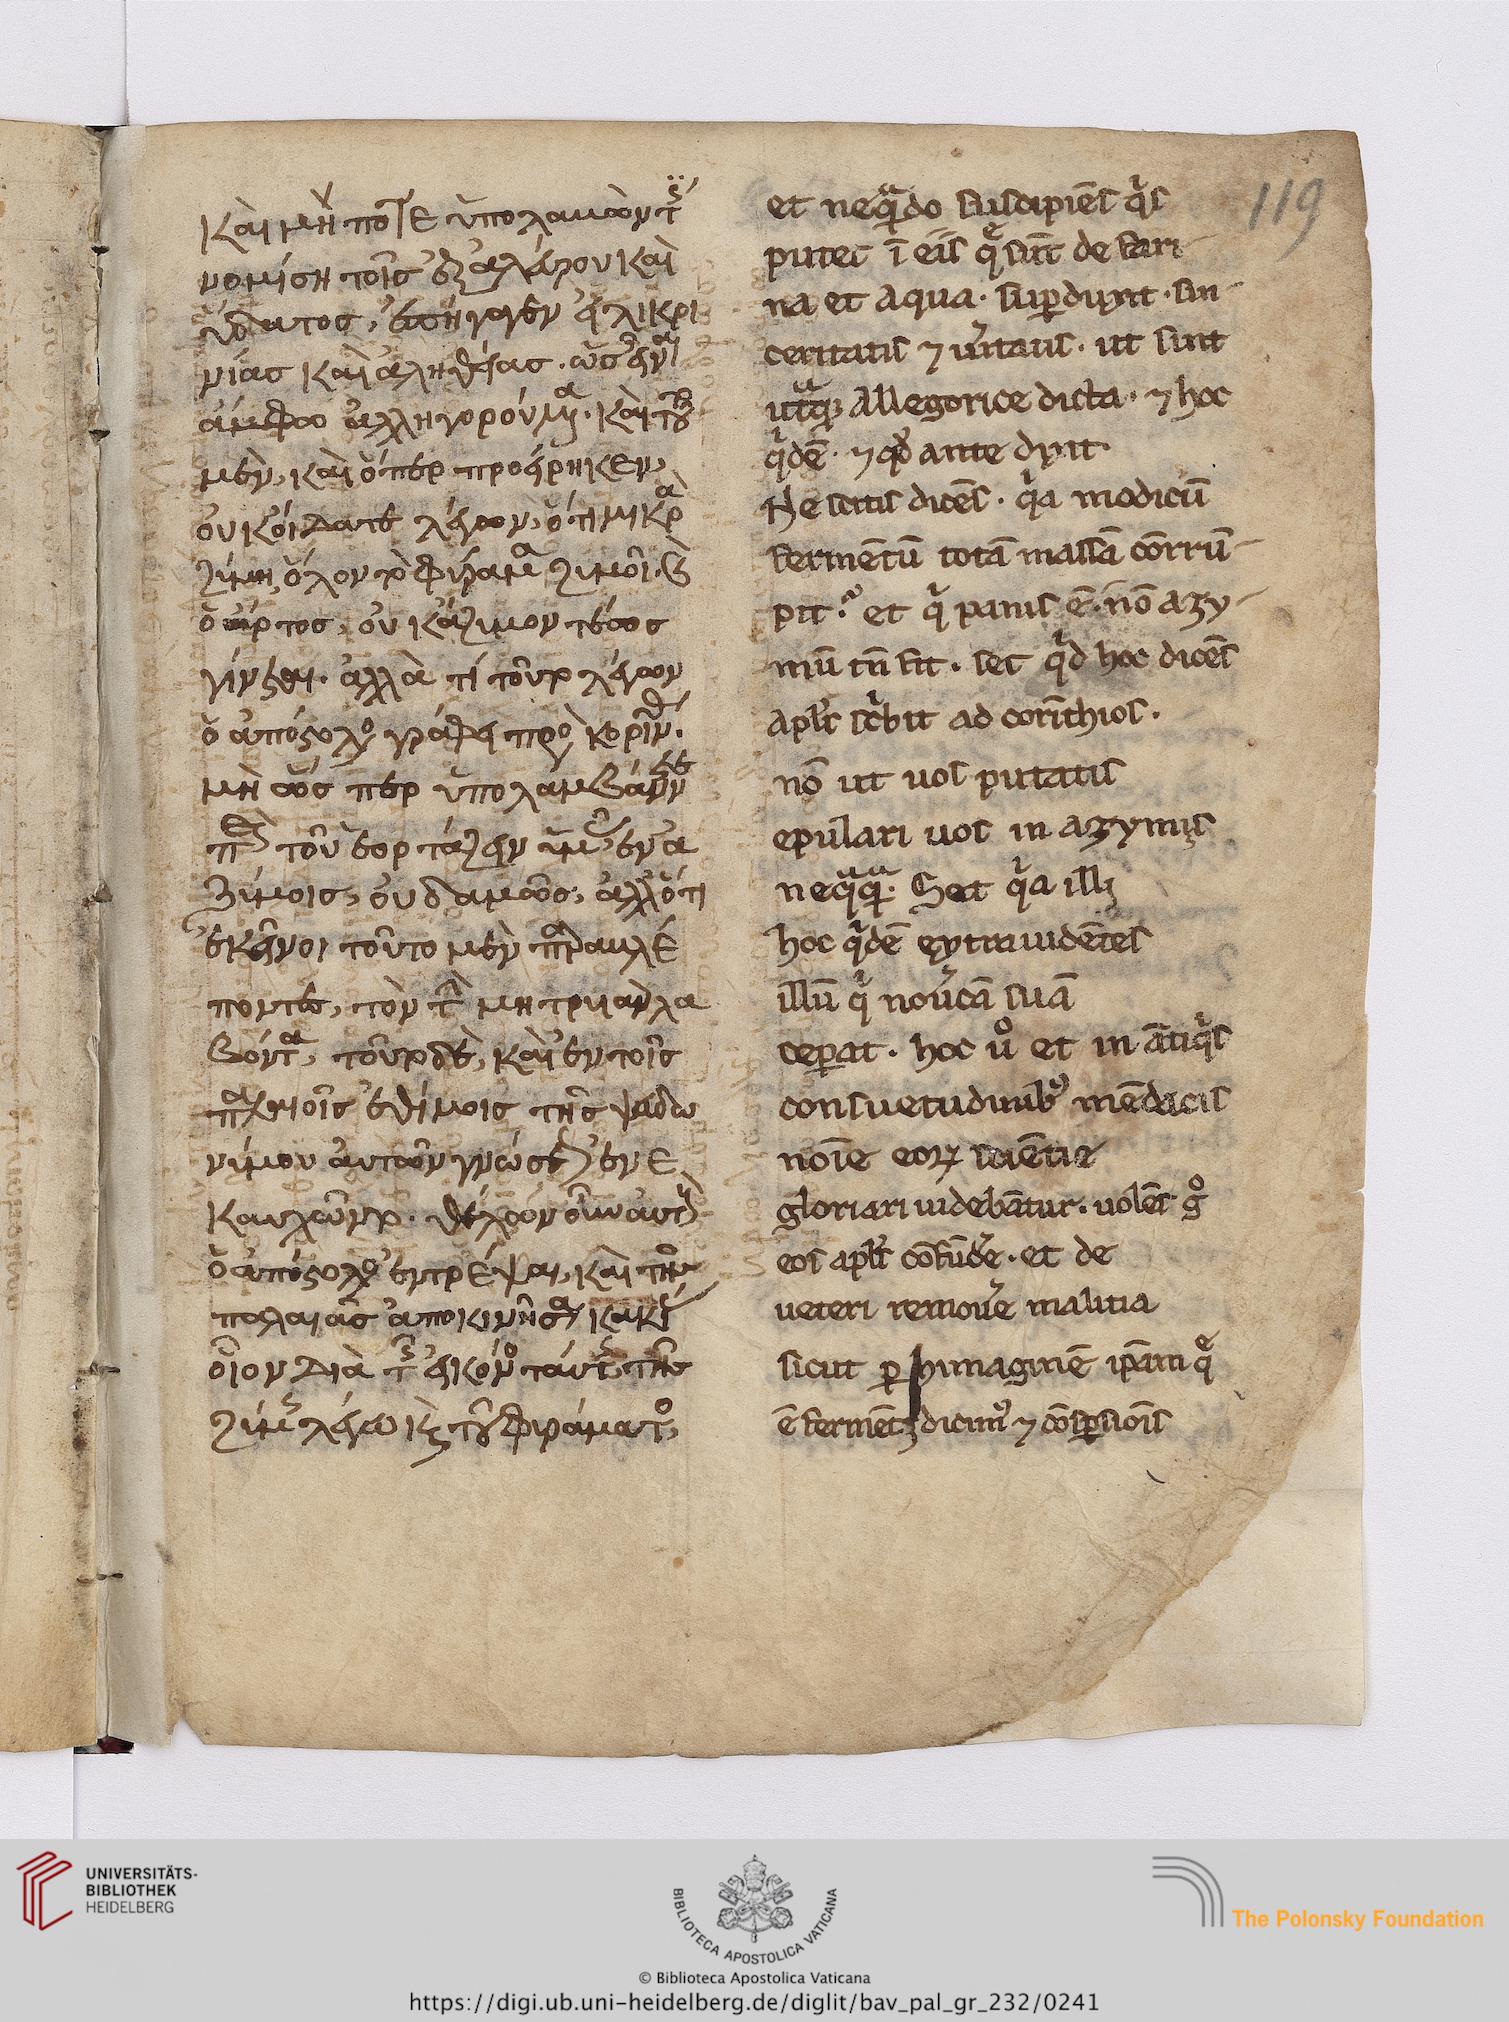 119
Καὶ μή ποτε ὑπολαβών τις
νομίση τοῖς ἐξ ἀλεύρου καὶ
ὕδατος, ἐπήγαγεν εἰλικρι
νίας καὶ ἀληθείας. ὡς εἶναι
ἄμφω ἀλληγορούμενα. καὶ τοῦτο
μὲν, καὶ ὅπερ προείρηκεν,
οὐκ οἴδατε λέγων, ὅτι μικρὰ
ζύμη ὅλον τὸ φύραμα ζυμοῖ.
ὁ ἄρτος, οὐκ ἄζυμον τέως
γίνεται. ἀλλὰ τί τοῦτο λέγων
ὁ ἀπόστολος γράφει πρὸς κοριν.
μὴ ὥσπερ ὑπολαμβάνετε
τοῦ ἑορτάζειν ὑμᾶς ἐν ἀ
ζύμοις, οὐδαμῶς, ἀλλ' ὅτι
ἐκεῖνοι τοῦτο μὲν παραβλέ
ποντες, τὸν τὴν μητρυιὰν λα
βόντα, τοῦτο δὲ, καὶ ἐν τοῖς
παλαιοῖς ἐθίμοις τῆς ψευδω
νύμου αὐτῶν γνώσεως ἐνε
καυχῶντο. θέλων οὖν αὐτοὺς
ὁ ἀπόστολος ἐντρέψαι, καὶ τῆς
παλαιᾶς ἀποκινῆσαι κακίας
οἷον διὰ τῆς εἰκόνος ταύτης τῆς
ζύμης λέγω καὶ τοῦ φυράματος,
et neqͣdo suscipiēs qͥs
putet ī eis q̄ sūt de fari-
na et aqua. sup̱duxit. sin-
ceritatis ⁊ u̓itatis. ut sint
ut̃qꝫ allegorice dicta. ⁊ hoc
qͥdē. ⁊ qd̓ ante dixit.
Nescitis dicēs. qͥa modicū
fermētū totā massā corrū-
pit. et qͥ panis ē. nō azy-
mū tn̄ fit. set qͥd hoc dicēs
apl̓s scͥbit ad corīthios.
nō ut uos putatis
epulari uos in azymis
neqͣqͣ. Set qͥa illi
hoc qͥdē extra uidētes
illū qͥ nou̓cā suā
ceperat. hoc u̓o et in ātiqͥs
consuetudinibꝰ mēdacis
noīe eoꝝ sciētie
gloriari uidebātur. uolēs gͦ
eos apl̓s cōfūde̓. et de
ueteri remoue̓ malitia
sicut ꝑ himaginē ip̄am q̄
ē fermēti dicimꝰ ⁊ cōsꝑsiōis
UNIVERSITÄTS-
BIBLIOTHEK
HEIDELBERG
BIBLIOTECA APOSTOLICA VATICANA
The Polonsky Foundation
© Biblioteca Apostolica Vaticana
https://digi.ub.uni-heidelberg.de/diglit/bav_pal_gr_232/0241